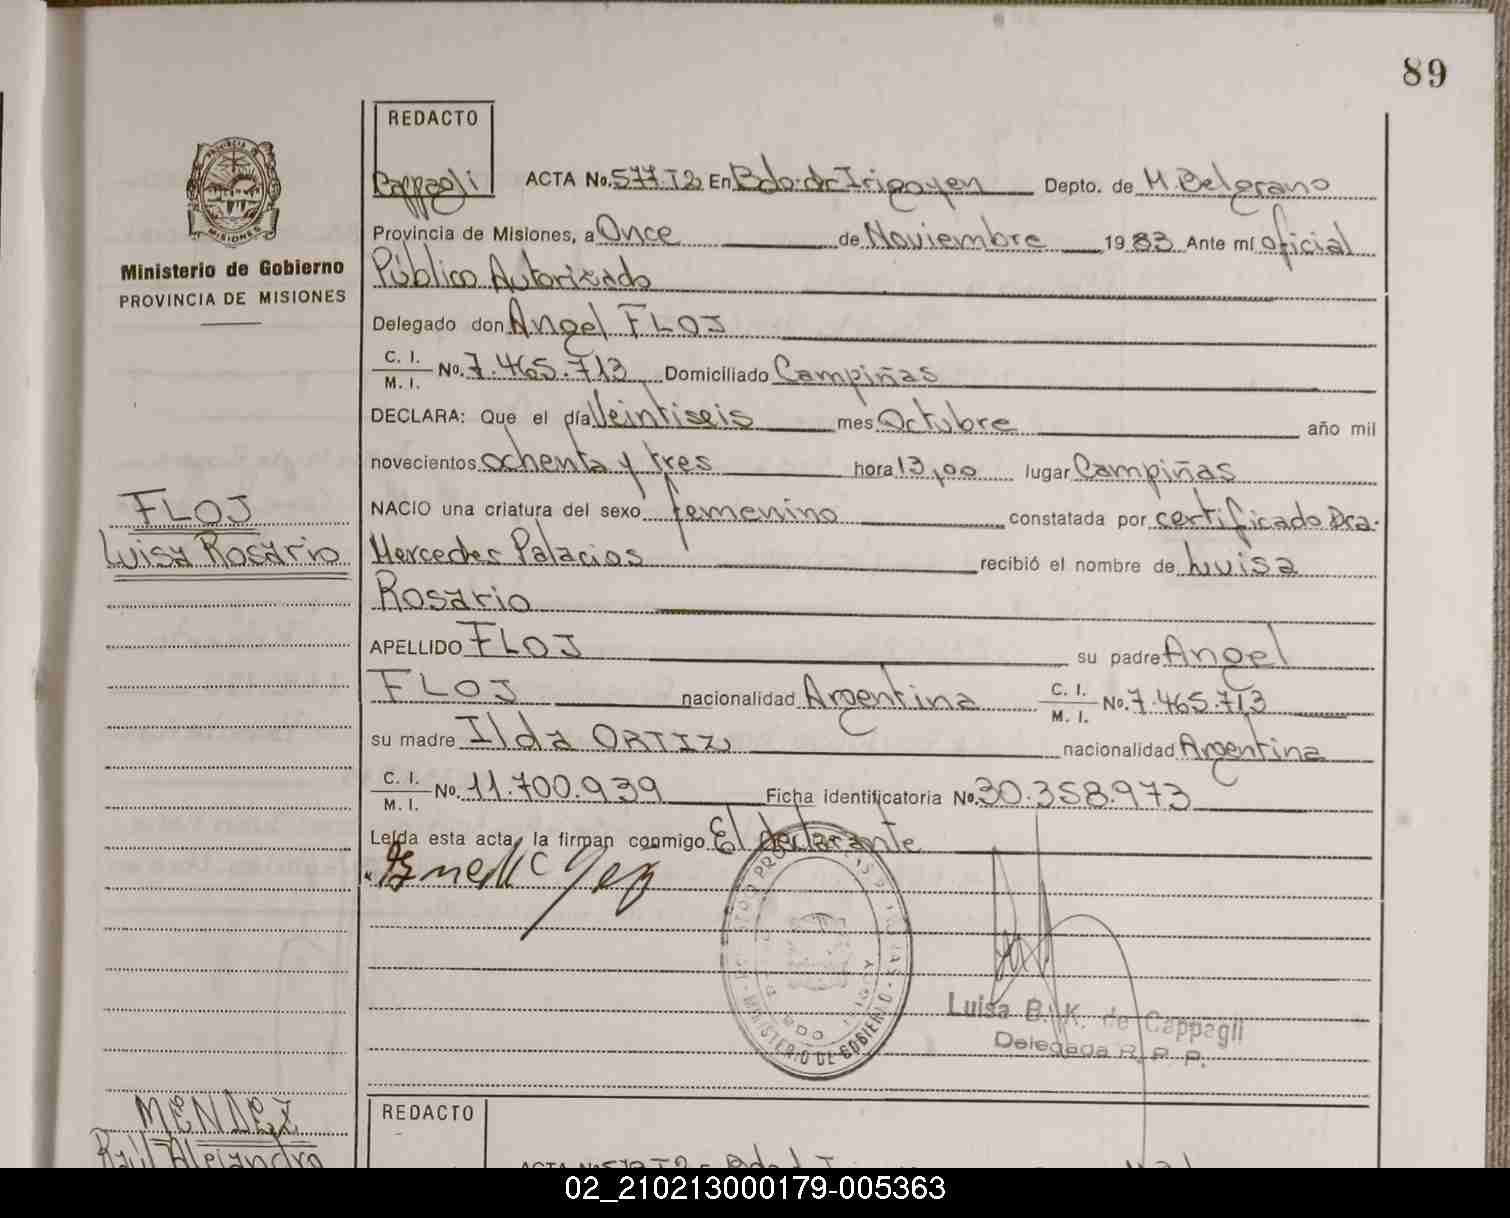 89
REDACTO
Cappagli
PROVINCIA DE
MISIONES
Ministerio de Gobierno
PROVINCIA DE MISIONES
ACTA No. 577.T2 En Bdo. de Irigoyen Depto. de M. Belgrano
Provincia de Misiones, a Once de Noviembre 1983 Ante mí oficial
Público Autorizado
Delegado don Angel FLOJ
C. I.
M. I. No. 7.465.713 Domiciliado Campiñas
DECLARA: Que el día Veintiseis mes Octubre año mil
novecientos ochenta y tres hora 13,00 lugar Campiñas
NACIO una criatura del sexo femenino constatada por certificado Dra.
Mercedes Palacios recibió el nombre de Luisa
Rosario
FLOJ
Luisa Rosario
APELLIDO FLOJ su padre Angel
FLOJ nacionalidad Argentina C. I.
M. I. No. 7.465.713
su madre Ilda ORTIZ nacionalidad Argentina
C. I.
M. I. No. 11.700.939 Ficha identificatoria No. 30.358.973
Leída esta acta, la firman conmigo El declarante
MINISTERIO DE GOBIERNO
Luisa B. K. de Cappagli
Delegada R. P. P.
MENDEZ
Raúl Alejandro
REDACTO
02_210213000179-005363